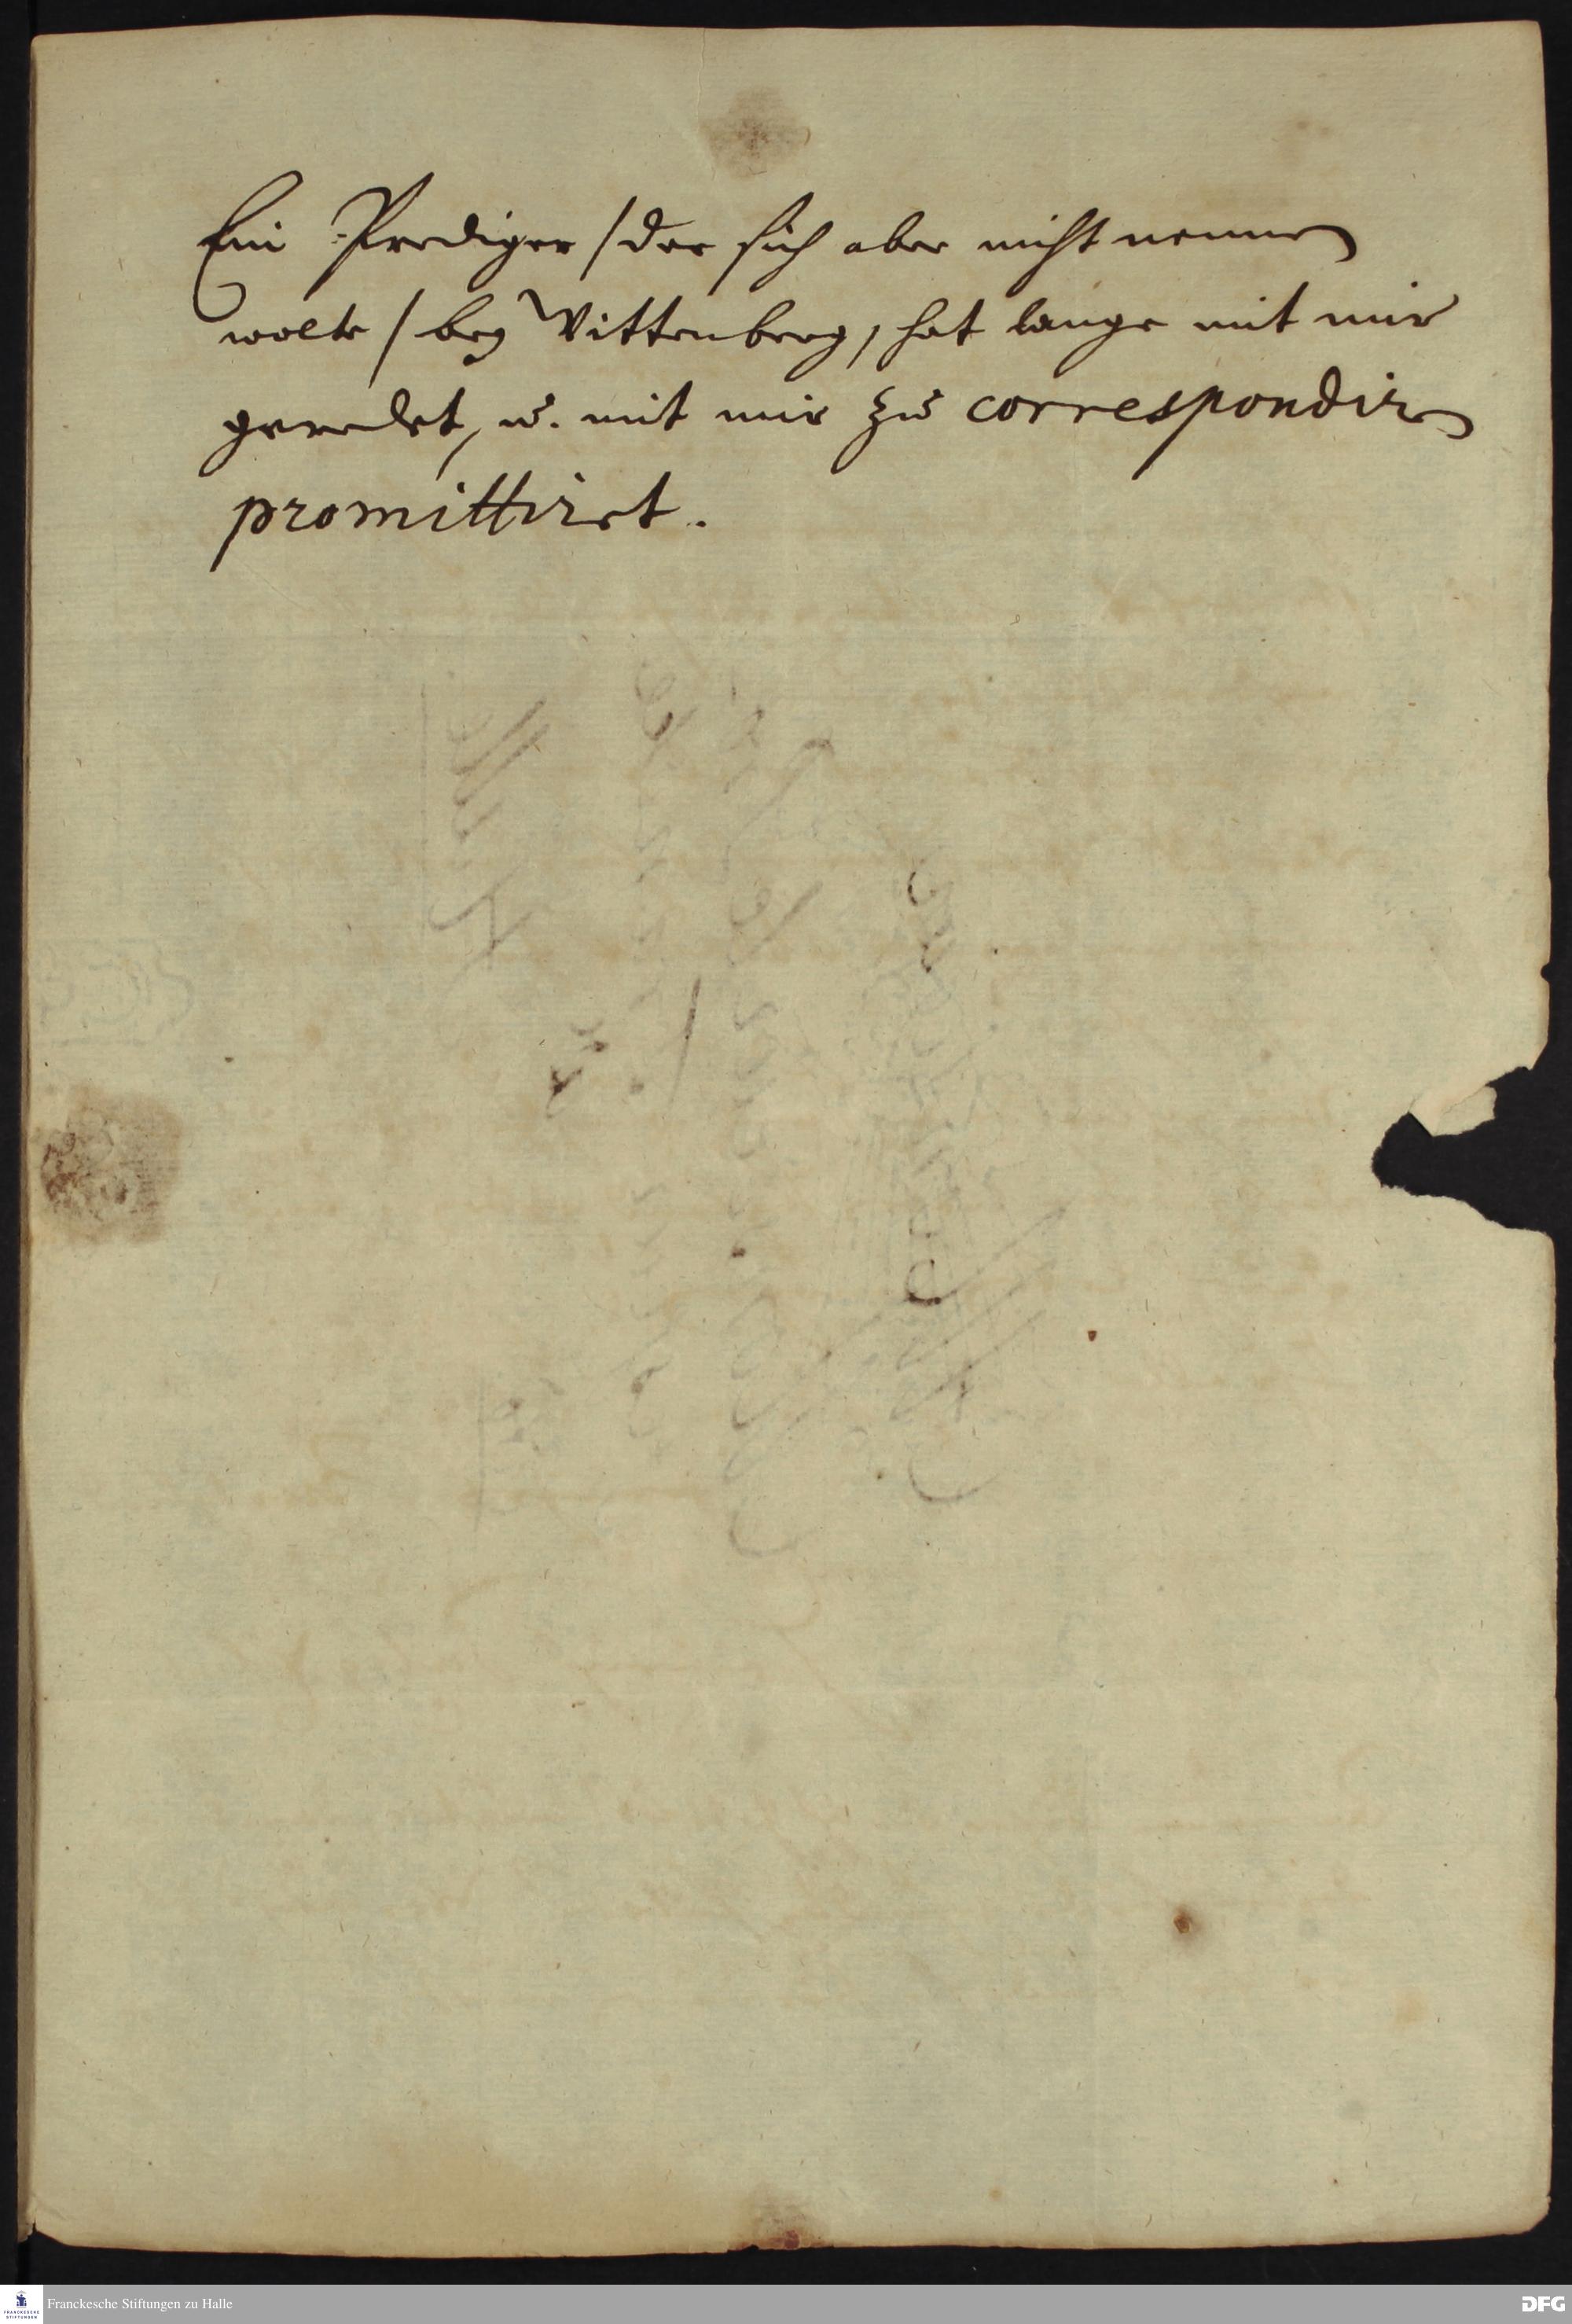 Ein Prediger /der sich aber nicht nennen
wolte / bey Wittenberg, hat lange mit mir
geredet, u. mit mir zu correspondiren
promittiret.
Franckesche Stiftungen zu Halle
DFG